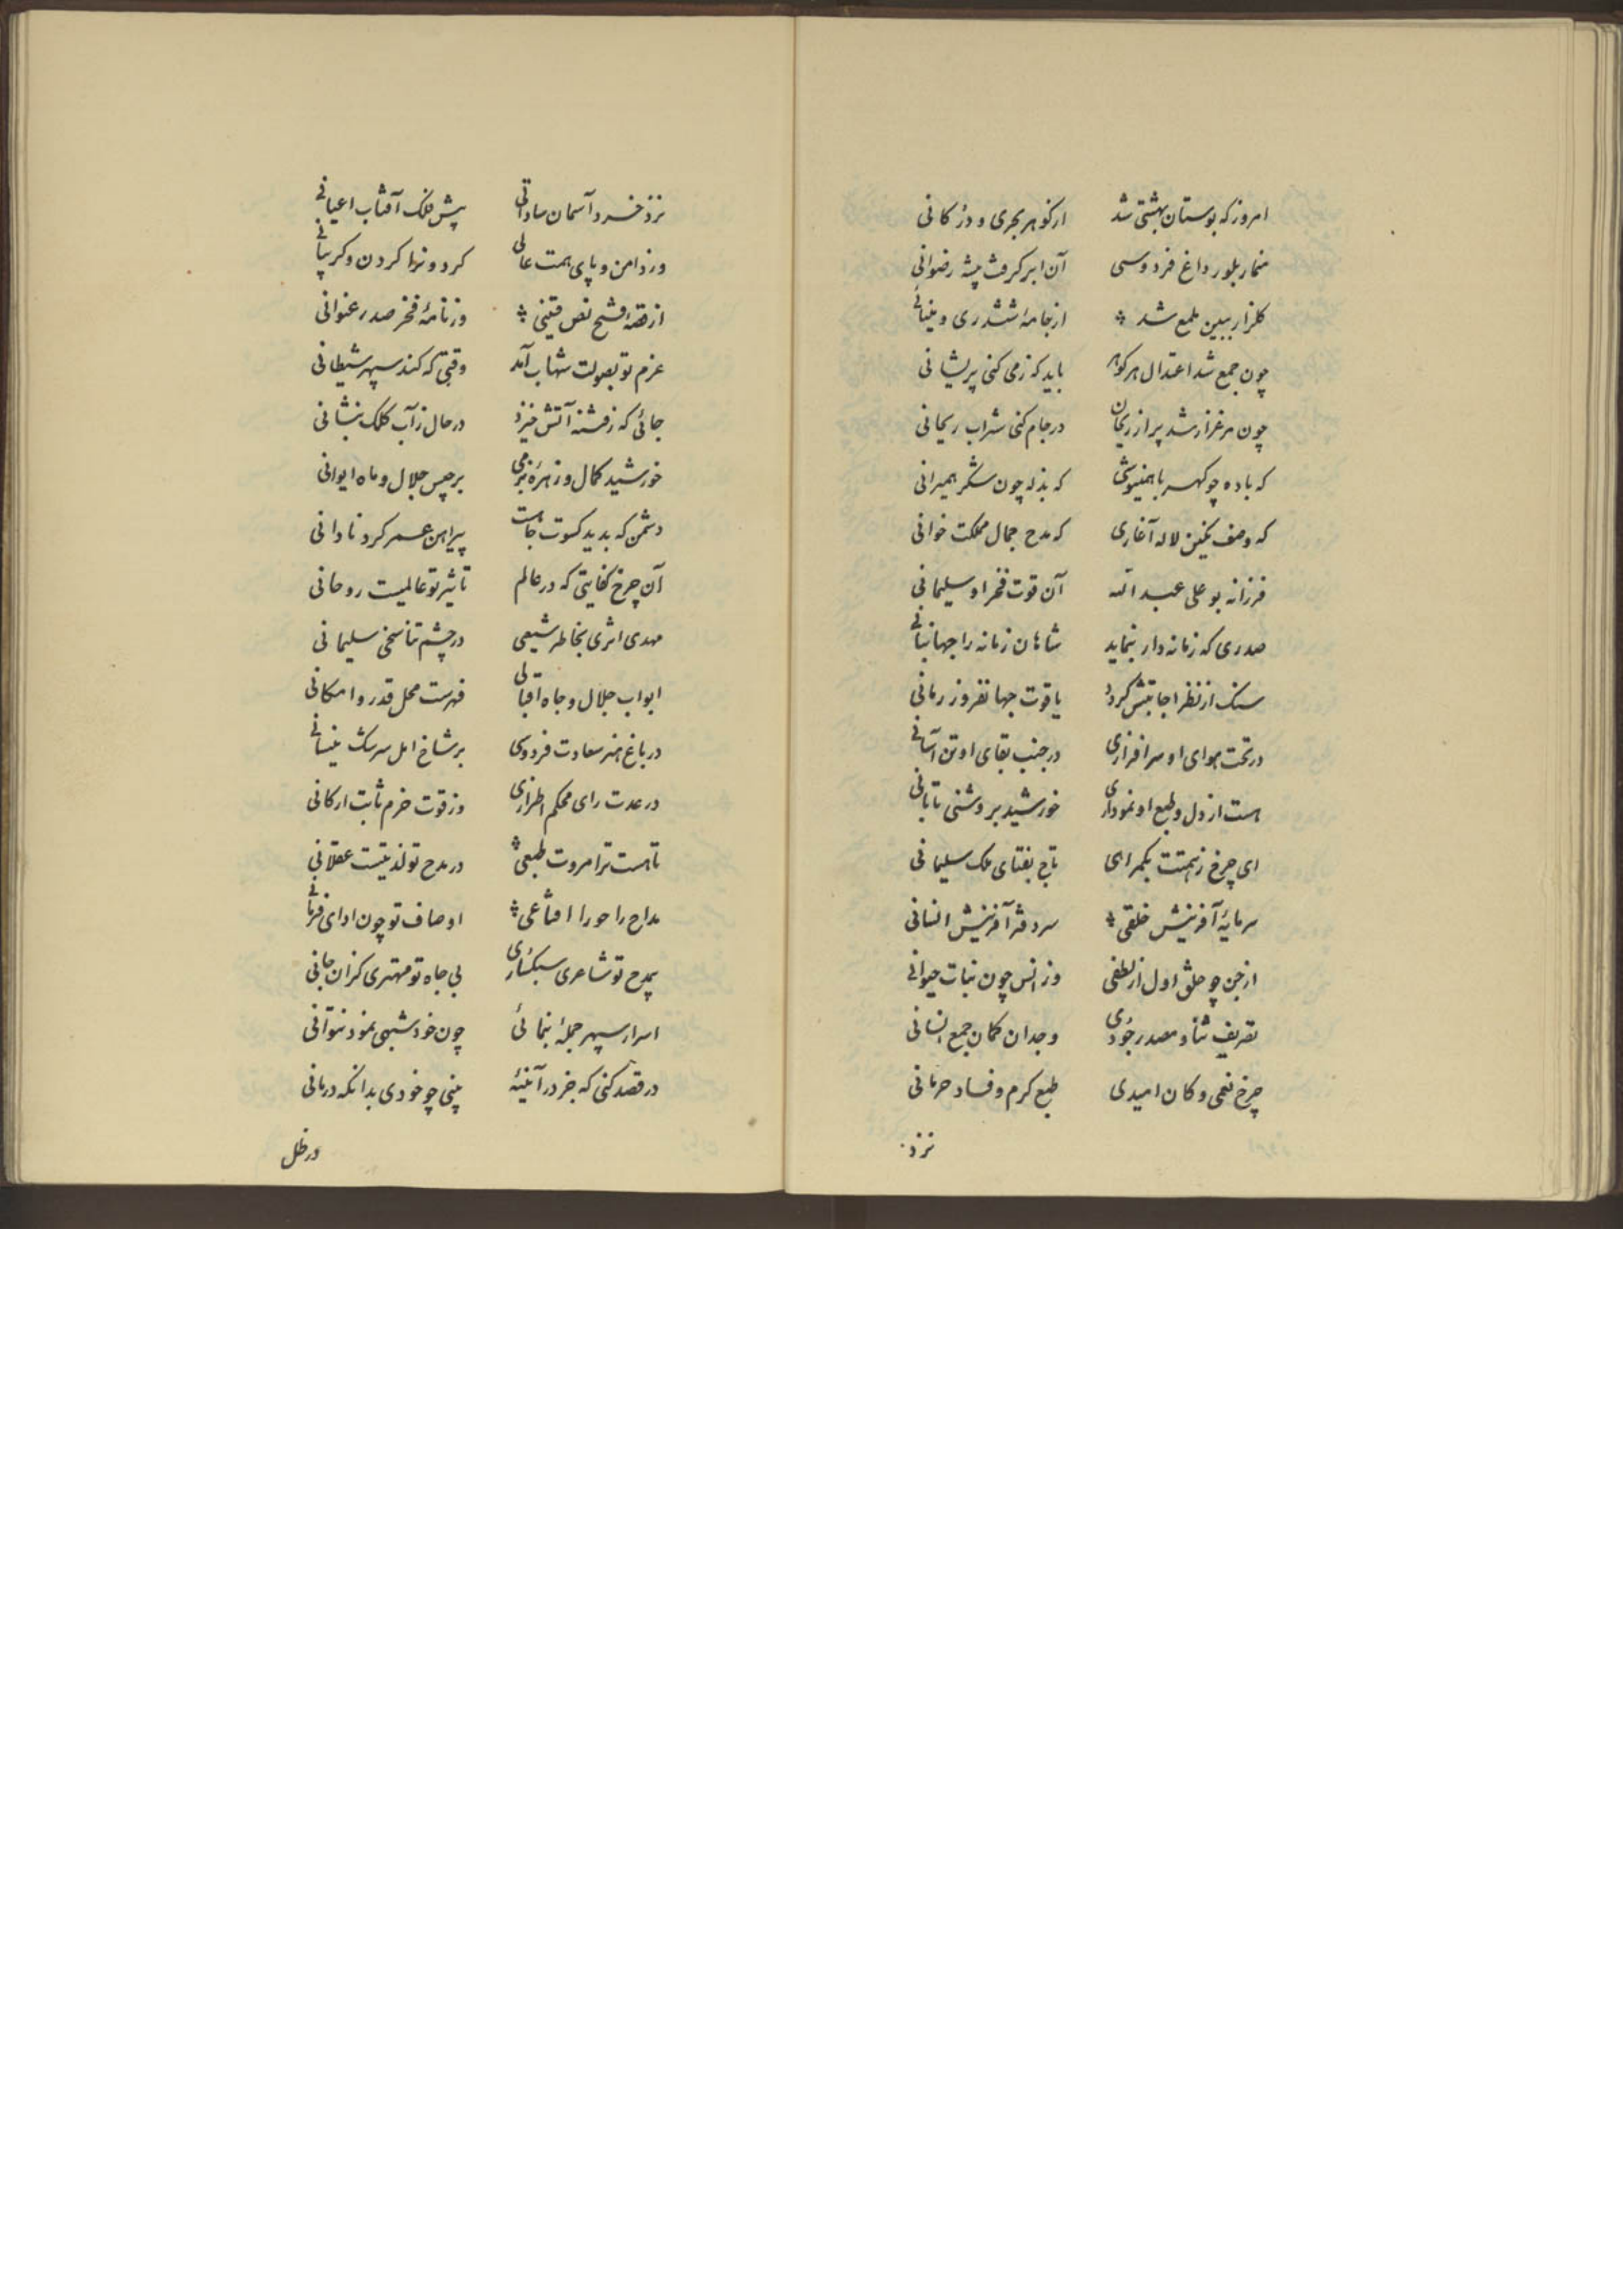 امروز که بوستان بهشتی شد ارکوهر بحری و در کانی
آن ابر کرفت پیشه رضوانی
کلزار ببین ملمع شد ازجامهٔ ششدری و
چون جمع شد اعتدال هر کوهر باید که زمی کنی پریشانی
چون مرغزار شد پر از ریحان در جام کنی شراب ریحانی
که باده چو کهربا که بذله چون شکر همیرانی
که وصف لاله آغازی که مدح جمال مملکت خوانی
فرزانه بو علی عبد الله آن قوت فخر او سلیمانی
صدری که زمانه دار بنماید شاهان زمانه را جهانبانی
سنک از نظر اجابتش کردد یاقوت جهانفروز رمانی
در تحت هوای او سرافرازی در جنب بقای او تن آسانی
هست از دل و طبع او نموداری خورشید بروشنی تابانی
ای چرخ زهمتت بکمراهی تاج بفتای ملک سلیمانی
سرمایهٔ آفرینش خلقی سر دفتر آفرینش انسانی
از جن چو خلق اول از لطفی وز انس چون نبات حیوانی
تعریف ثنا و مصدر جودی وجدان کمان جمع انسانی
چرخ نعمی و کان امیدی طبع کرم و فساد حرمانی
نزد
نزد خرد آسمان ساداتی پیش فلک آفتاب اعیانی
ورذامن و پای همت عالی کرد و نرا کردن و
از قصهٔ فتح نص وزنامهٔ فخر صدر عنوانی
عزم تو بصولت شهاب آمد وقتی که کند سپهر شیطانی
جائی که زفتنه آتش خیزد در حال زآب کلک بنشانی
خورشید کمال و زهرهٔ بزمی برجیس جلال و ماه ایوانی
دشمن که بدید کسوت جاهت پیراهن عمر کرد نادانی
آن چرخ کفایتی که در عالم تاثیر تو عالمیست روحانی
مهدی اثری بخاطر شیعی در چشم تناسخی سلیمانی
ابواب جلال و جاه اقبالی فهرست محل قدر و امکانی
در باغ هنر سعادت فردوسی بر شاخ امل سرشک نیسانی
در عدت رای محکم اطرازی وز قوت حزم ثابت ارکانی
تا هست ترا مروت طبعی در مدح تو لذتیست عقلانی
مداح را اوصاف تو چون ادای
بمدح تو شاعری سبکساری بی جاه تو مهتری کران جانی
اسرار سپهر جمله بنمائی چون خود شبهی نمود نتوانی
در قصد کنی که جز در آئینهٔ بینی چو خودی بدانکه درمانی
در ظل